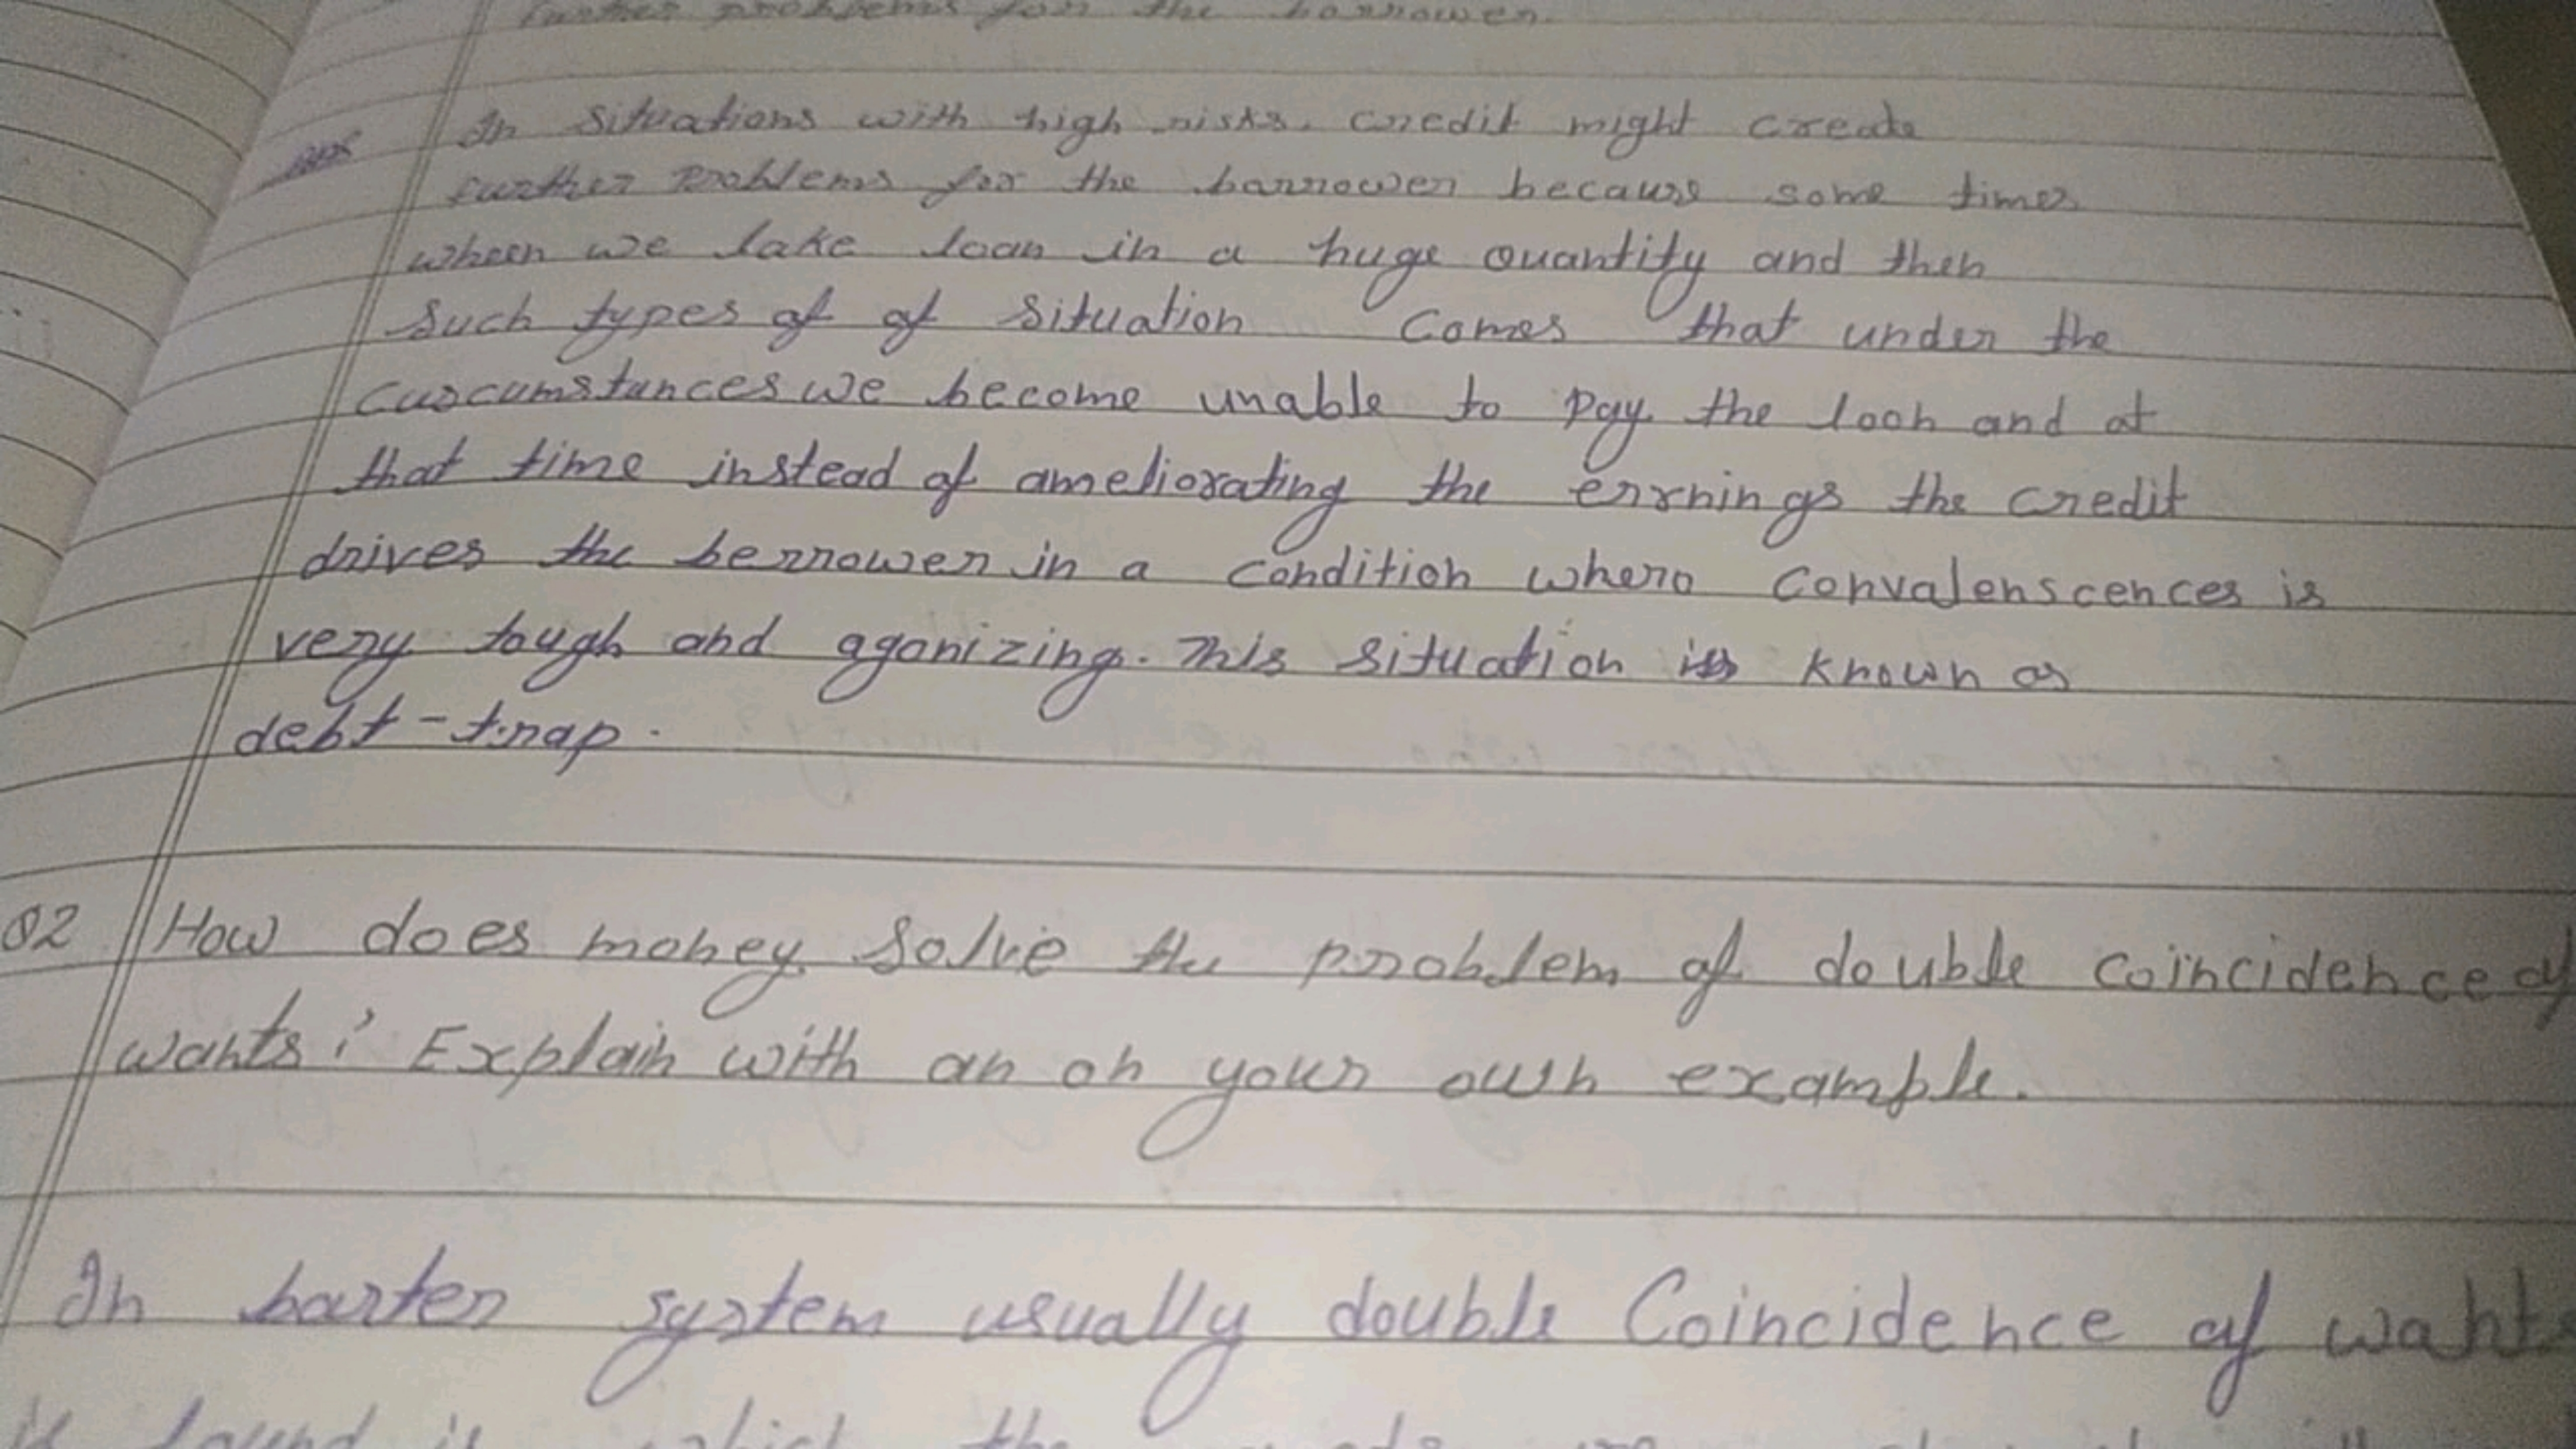 further problems for the borrower.
Ans In situations with high risks. credit might create
further problems for the barrower because some times
wheen we take loan in a huge quantity and then
Such types of of situation comes that under the
curcumstances we become unable to pay the loan and at
that time instead of ameliorating the errnings the credit
drives the berrower in a condition where convalenscences is
very tough and agonizing. This situation is known as
debt-trap.
Q2 How does money solve the problem of double coincidence of
wants? Explain with an oh your own example.
In barter system usually double Coincidence of wants
is found is which the